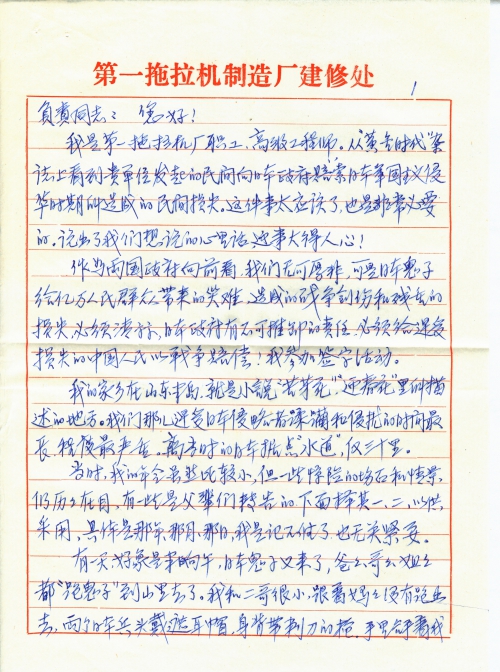 第一拖拉机制造厂建修处
1
负责同志：您好！
我是第一拖拉机厂职工、高级工程师。从"黄金时代"杂
志上看到贵单位发起的民间向日本政府赔索日本军国主义侵
华时期所造成的民间损失。这件事太应该了，也是非常必要
的。说出了我们想说的心里话，这事大得人心！
作为两国政府向前看，我们无可厚非，可是日本鬼子
给亿万人民群众带来的灾难、造成的战争创伤和残书的
损失，必须清，日本政府有不可推卸的责任，必须给遭受
损失的中国人民以战争赔偿！我参加签字活动。
我的家乡在山东半岛，就是小说"苦菜花""迎春花"里所描
述的地方。我们那儿遭受日本侵略者蹂躏和侵扰的时间最
长，残最严重。离当时的日本据点"水道"，仅三十里。
当时，我的年令虽然比较小，但一些惊险的场面和情景，
仍历历在目，有一些是父辈们转告的。下面择其一、二，以供
采用，具体是那年、那月、那日，我是记不住了，也无关紧要。
有一天，好象是半晌午，日本鬼子又来了，爸爸、哥哥、姐姐
都"跑鬼子"到山里去了。我和二哥很小，跟着妈妈没有跑出
去，两个日本兵头戴遮耳帽，身背带刺刀的枪，手里牵着我